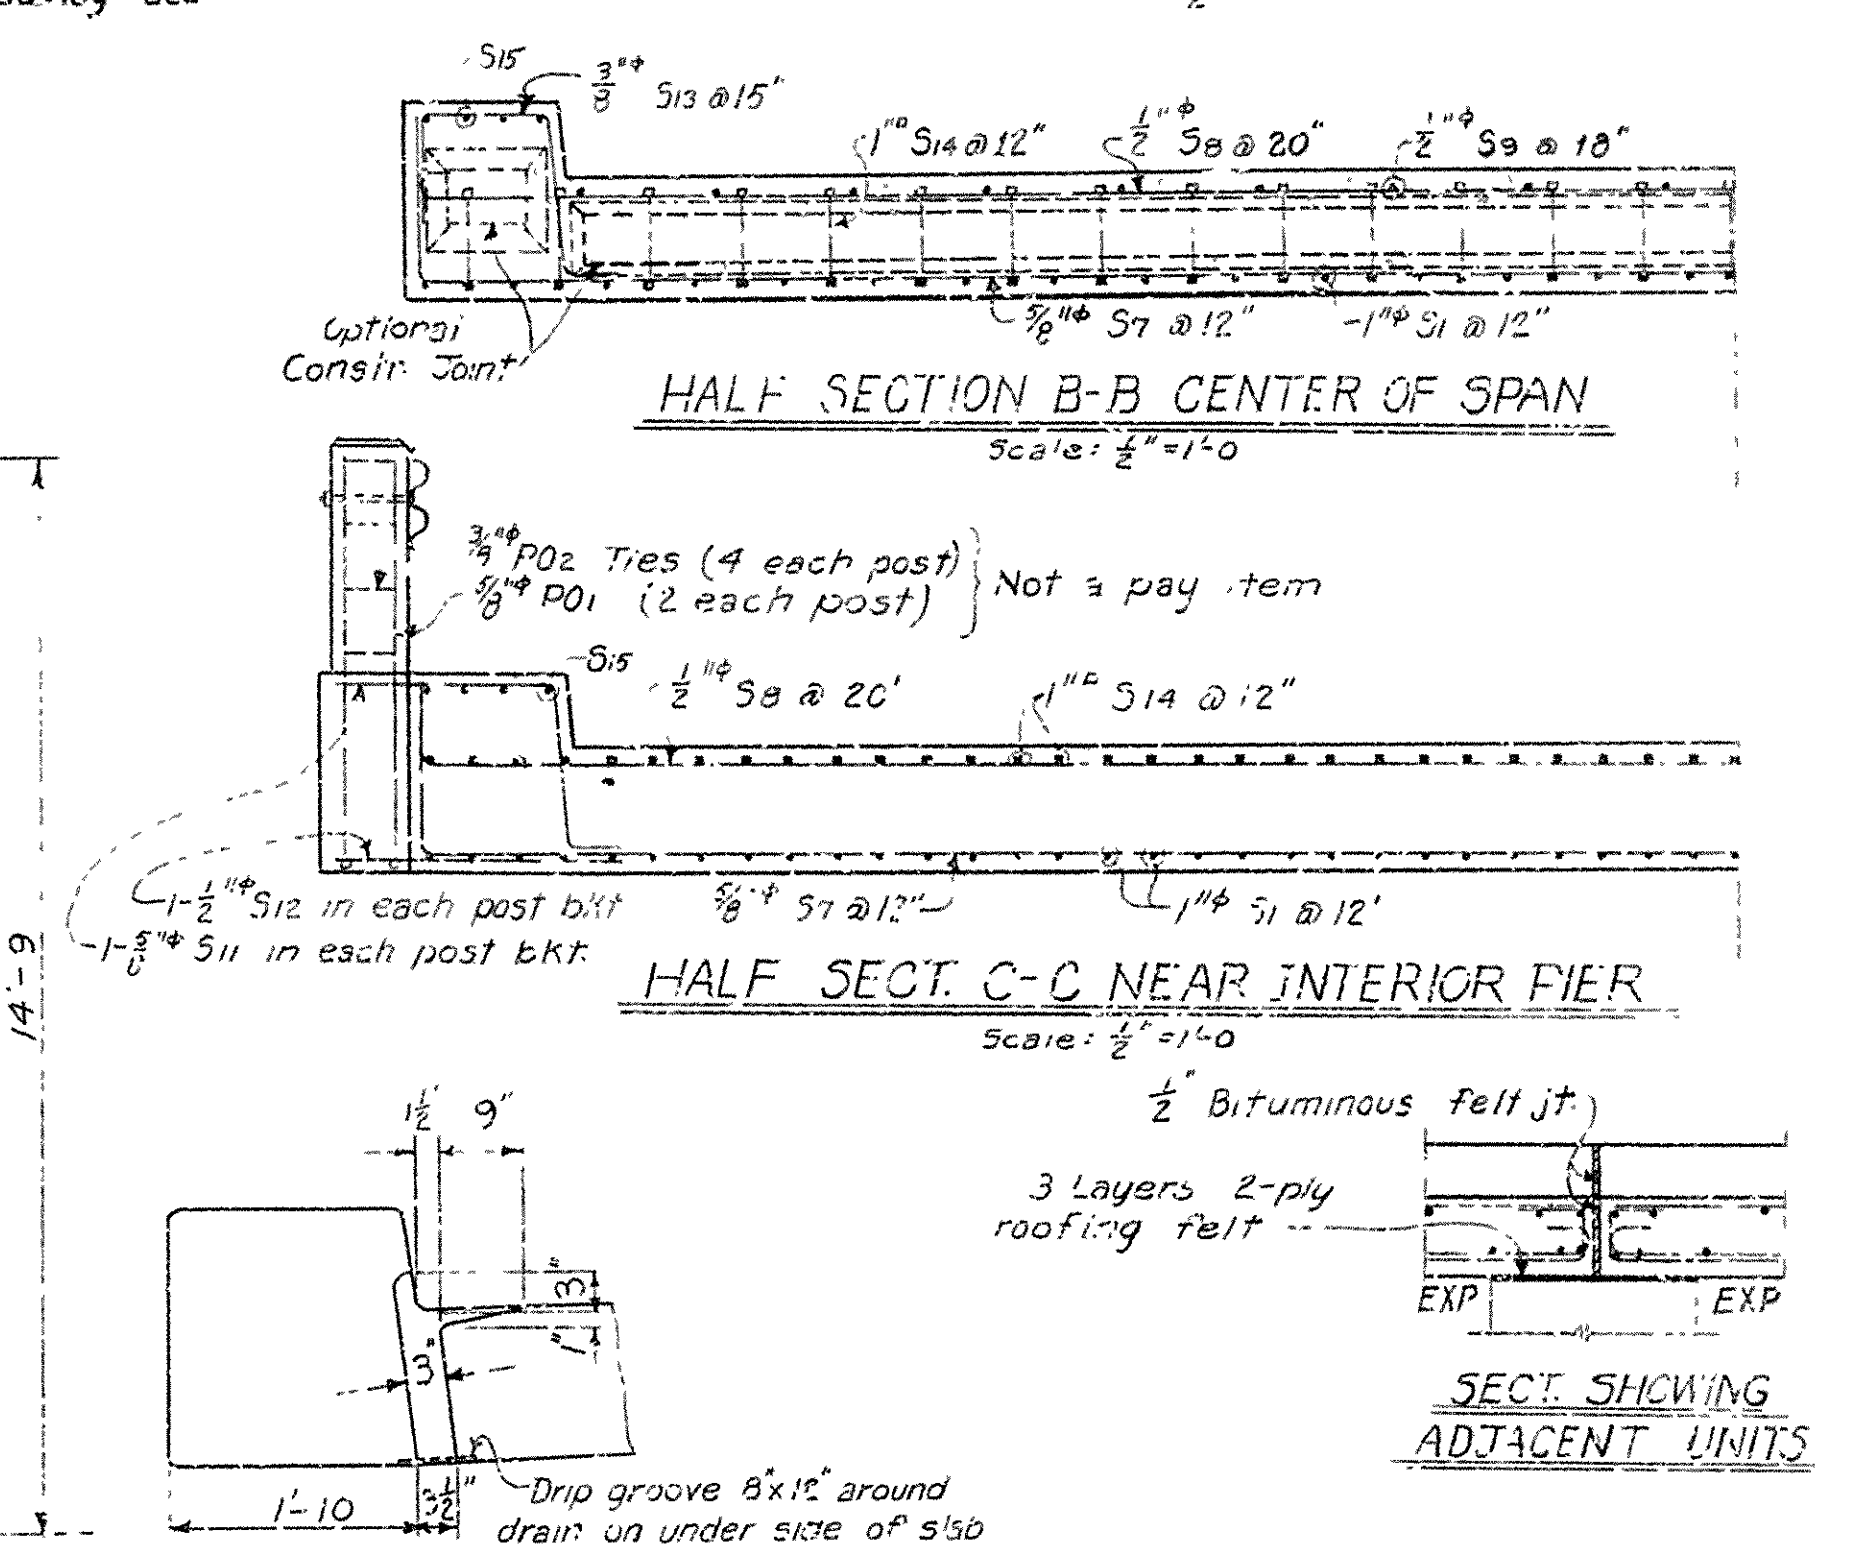 S15
3/8"ϕ S13 @ 15"
1"□ S14 @ 12"
1/2"ϕ S8 @ 20"
1/2"ϕ S9 @ 18"
5/8"ϕ S7 @ 12"
1"ϕ S1 @ 12"
Optional
Constr. Joint
HALF SECTION B-B CENTER OF SPAN
Scale: 1/2" = 1'-0
PO2 Ties (4 each post)
5/8"ϕ PO1 (2 each post)
Not a pay item
S15
1/2"ϕ S8 @ 20"
1"□ S14 @ 12"
14'-9
1-1/2"ϕ S12 in each post bkt
1-5/8"ϕ S11 in each post bkt.
5/8"ϕ S7 @ 12"
1"ϕ S1 @ 12"
HALF SECT. C-C NEAR INTERIOR PIER
Scale: 1/2" = 1'-0
1 1/2" 9"
3"
1"
3"
1'-10
3 1/2"
Drip groove around
drain on under side of slab
1/2" Bituminous felt jt.
3 Layers 2-ply
roofing felt
EXP EXP
SECT. SHOWING
ADJACENT UNITS